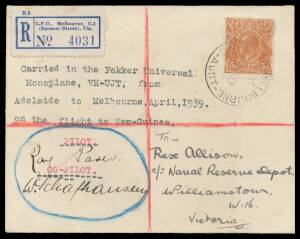 R 6
G.P.O., Melbourne, C.1
(Spencer Street), Vic.
R No. 4031
Carried in the Fokker Universal
Monoplane, VH-UJT, from
Adelaide to Melbourne, April, 1939.
on the flight to New-Guinea.
PILOT.
CO-PILOT.
To—
Rex Allison,
c/o Naval Reserve Depot,
Williamstown,
W.16.
Victoria.